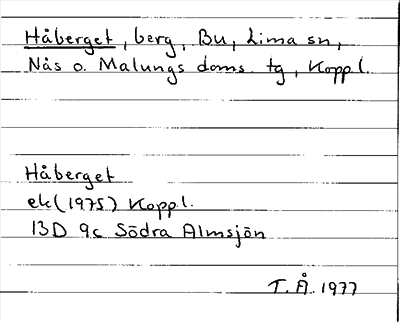 Håberget, berg, Bu, Lima sn,
Nås o. Malungs doms. tg, Kopp.l.
Håberget
ek (1975) Kopp.l.
13D 9c Södra Almsjön
T.Å. 1977